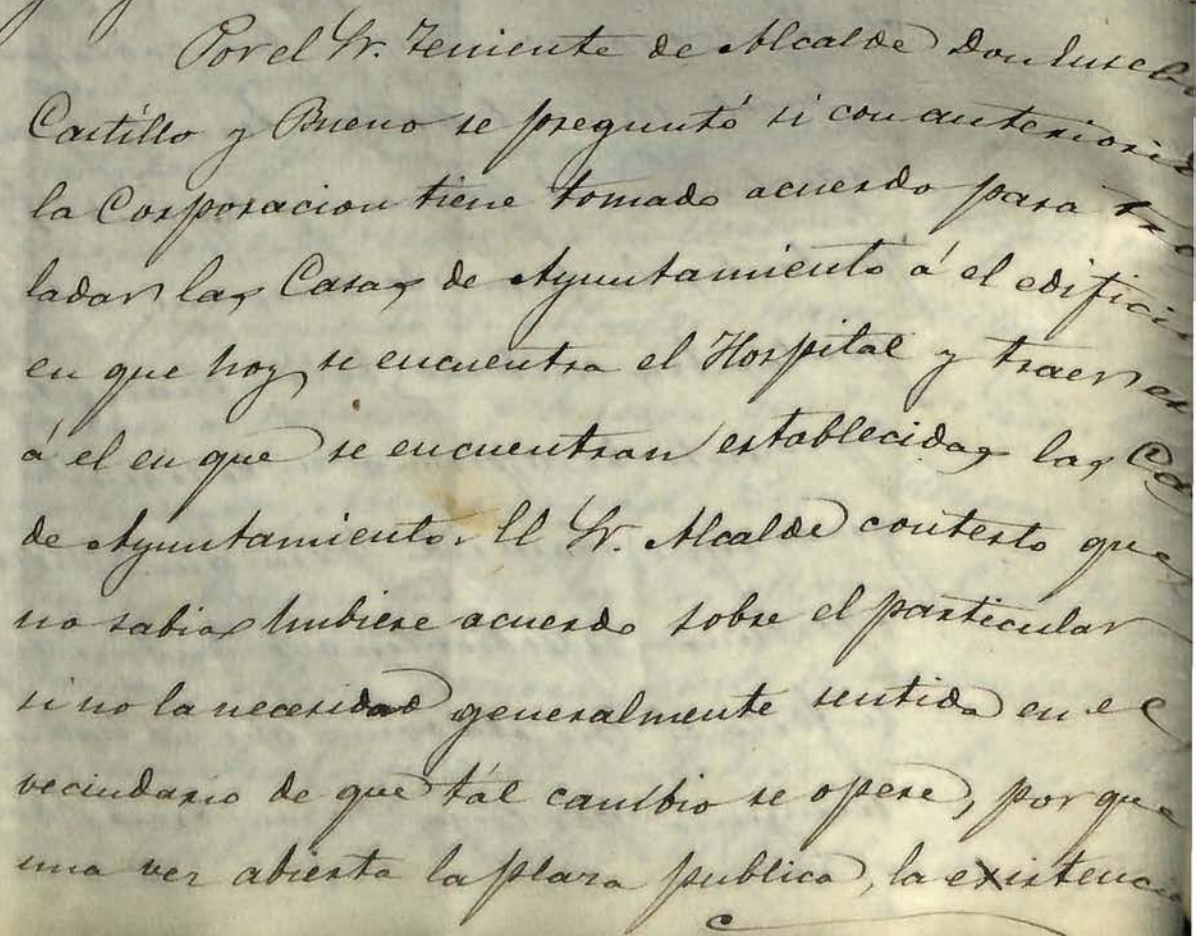 Por el Sr. Teniente de Alcalde Don Euseb
Castíllo y Bueno se preguntó si con anteriorid
la Corporacion tiene tomado acuerdo para tra
ladar las Casas de Ayuntamiento á el edificio
en que hoy se encuentra el Hospital y traer es
á el en que se encuentran establecidas las Ca
de Ayuntamiento. El Sr. Alcalde contesto que
no sabia hubiese acuerdo sobre el particular
si no la necesidad generalmente sentida en el
vecindario de que tál cambio se opere, por que
una vez abierta la plaza publica, la existencia